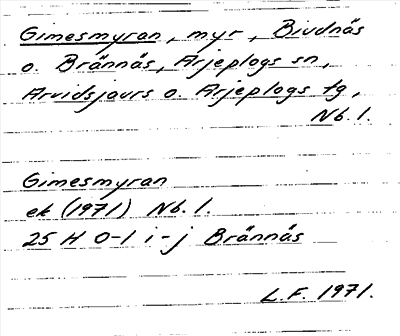 Gimesmyran, myr, Bivdnäs
o. Brännäs, Arjeplogs sn,
Arvidsjaurs o. Arjeplogs tg,
Nb. l.
Gimesmyran
ek (1971) Nb. l.
25 H 0-1 i-j Brännäs
L.F. 1971.